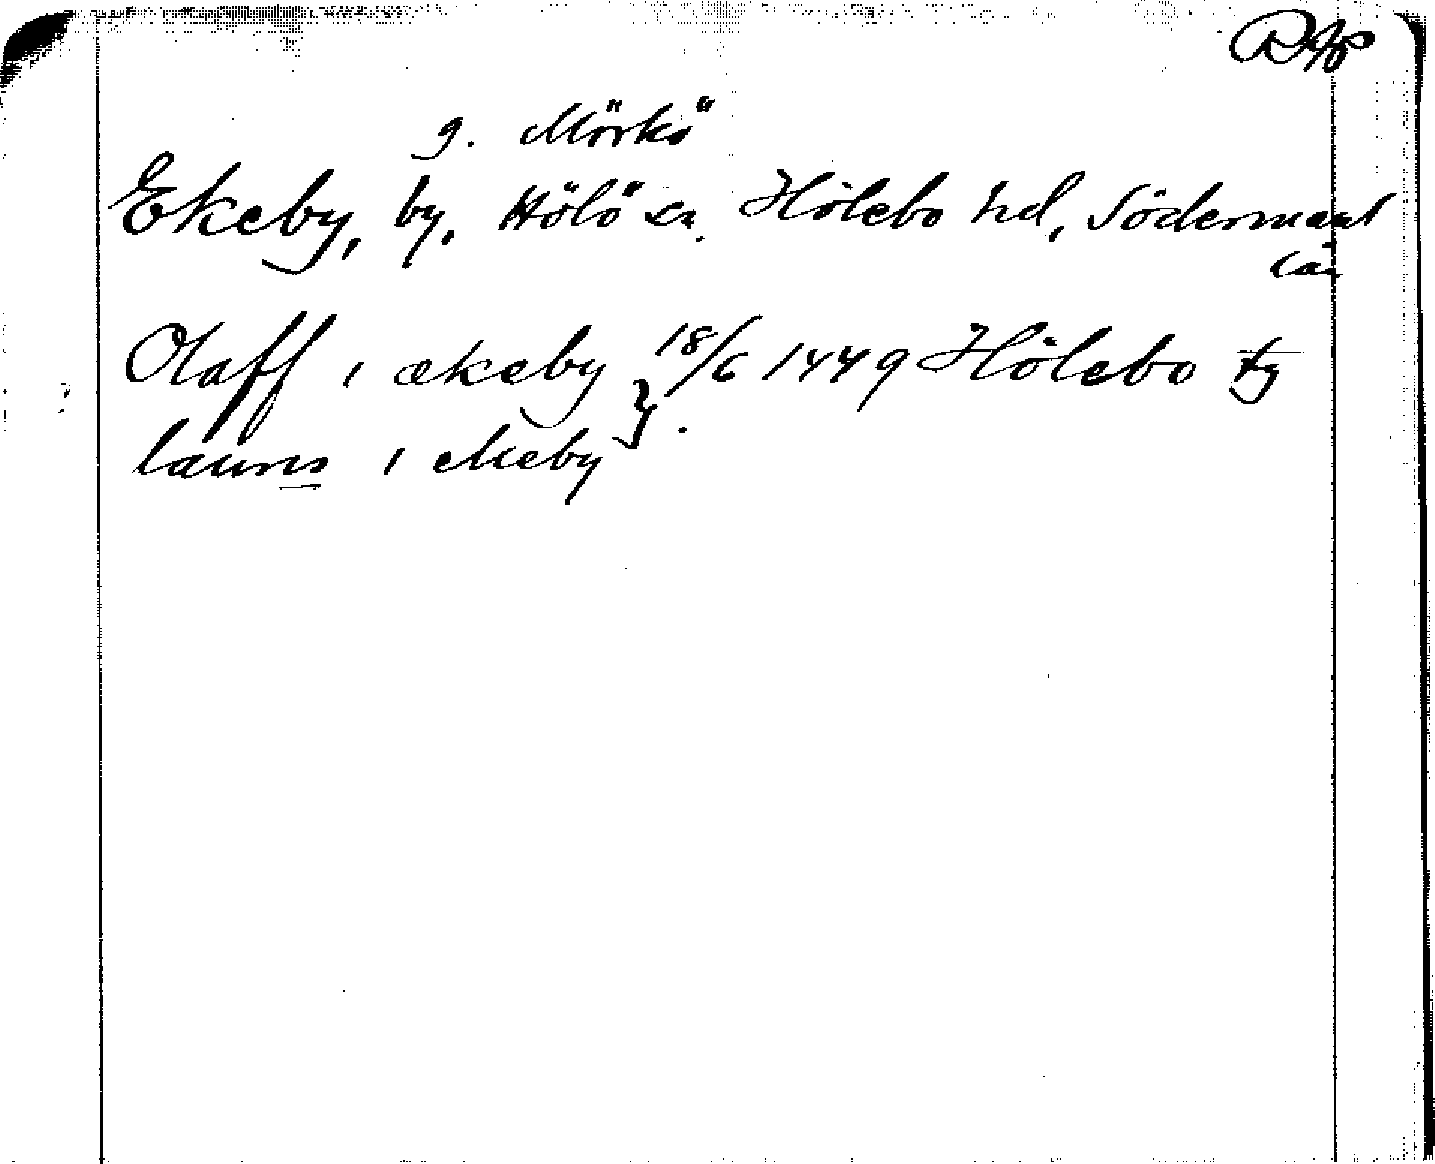 RAp
g. Mörkö
Ekeby, by, Hölö sn. Hölebo hd, Södermanl
län
Olaff i ækeby } 18/6 1449 Hölebo tg
lauris i ekeby